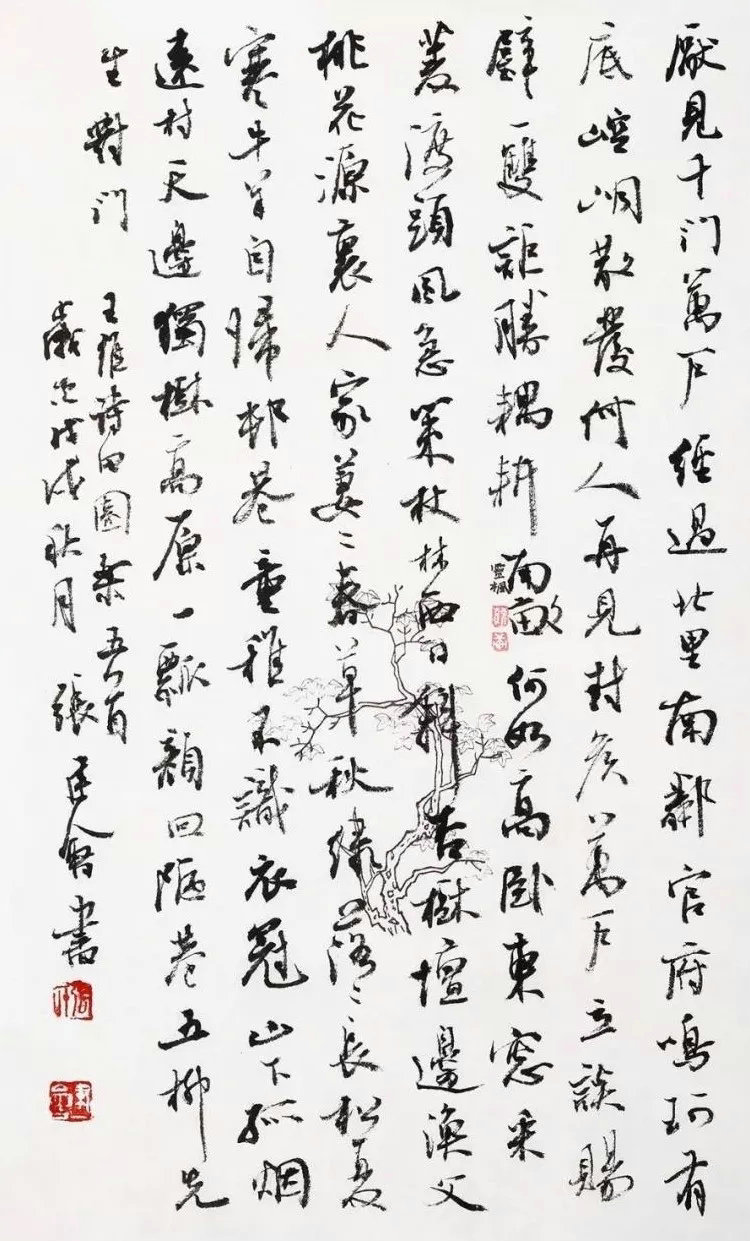 厭見千门萬户經過北里南鄰官府鳴珂有
底崆峒散髮何人再見封侯萬户立談賜
璧一雙詎勝耦耕南畝何如高卧東窓采
菱渡頭風急策杖林西日斜杏樹壇邊漁父
桃花源裏人家萋〻春草秋緑落〻長松夏
寒牛羊自歸邨巷童稚不識衣冠山下孤烟
遠村天邊獨樹高原一瓢顔回陋巷五柳先
生對门
王維詩田園樂五首
歲次戊戌秋月 張 書